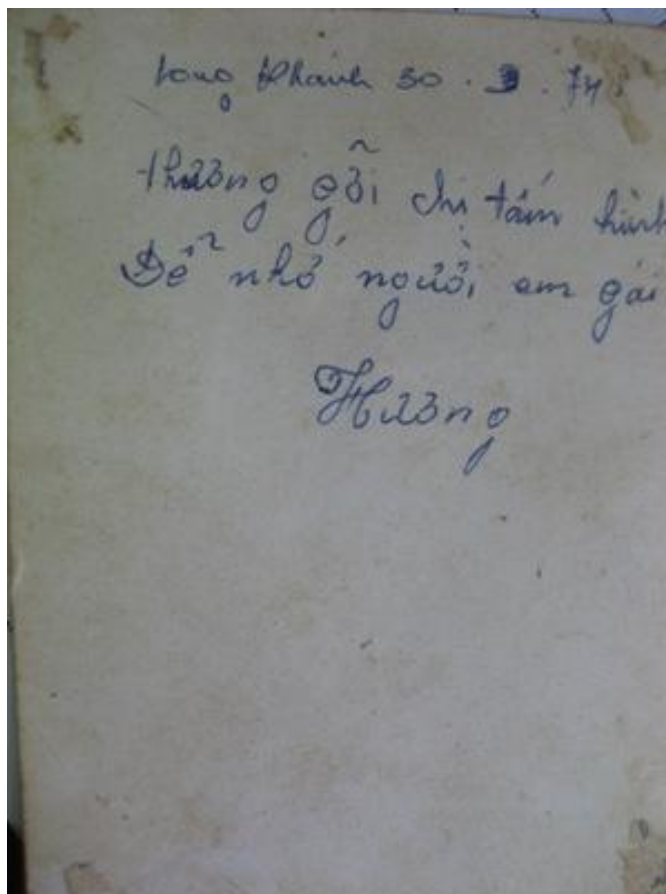 Long Khánh 30.3.74
Thương gỡi chị tấm hình
Để nhớ người em gái
Hương